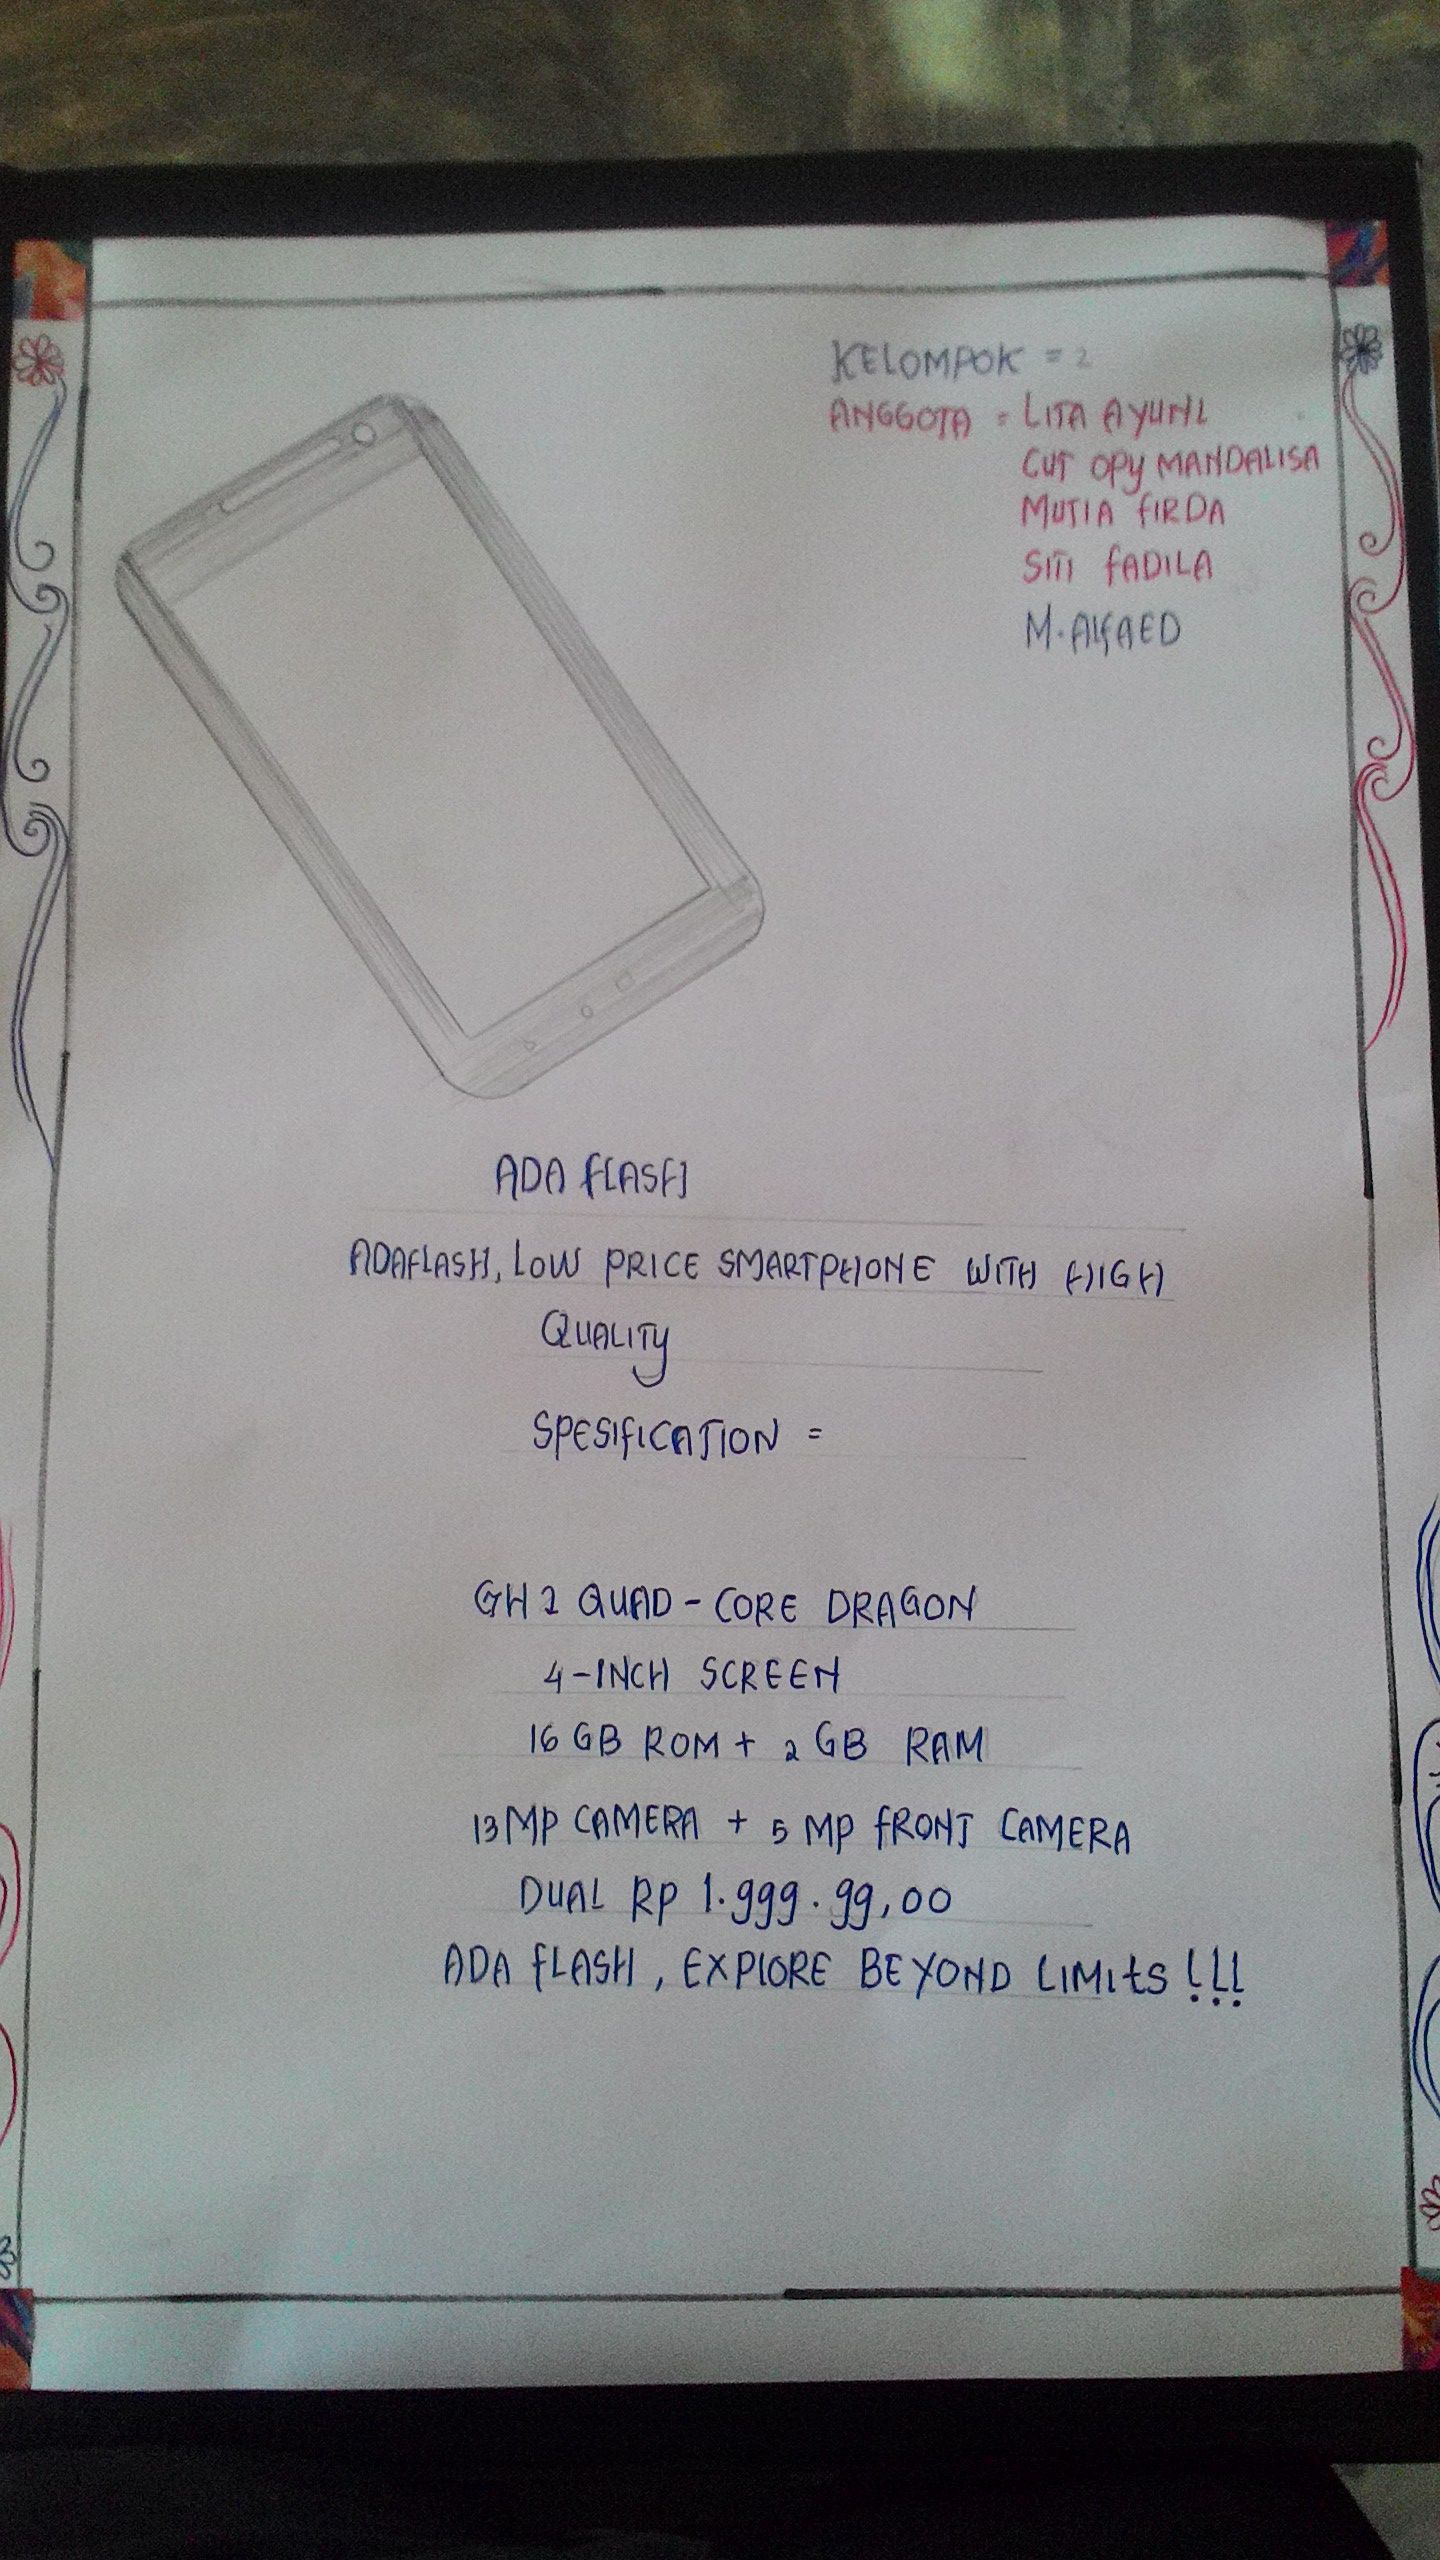 KELOMPOK = 2
ANGGOTA = LITA AYUNI
CUT OPY MANDALISA
MUTIA FIRDA
SITI FADILA
M. ALFAED
ADA FLASH
ADAFLASH, LOW PRICE SMARTPHONE WITH HIGH
QUALITY
SPESIFICATION =
GH 2 QUAD-CORE DRAGON
4-INCH SCREEN
16 GB ROM + 2 GB RAM
13 MP CAMERA + 5 MP FRONT CAMERA
DUAL RP 1.999.99,00
ADA FLASH, EXPLORE BEYOND LIMITS!!!